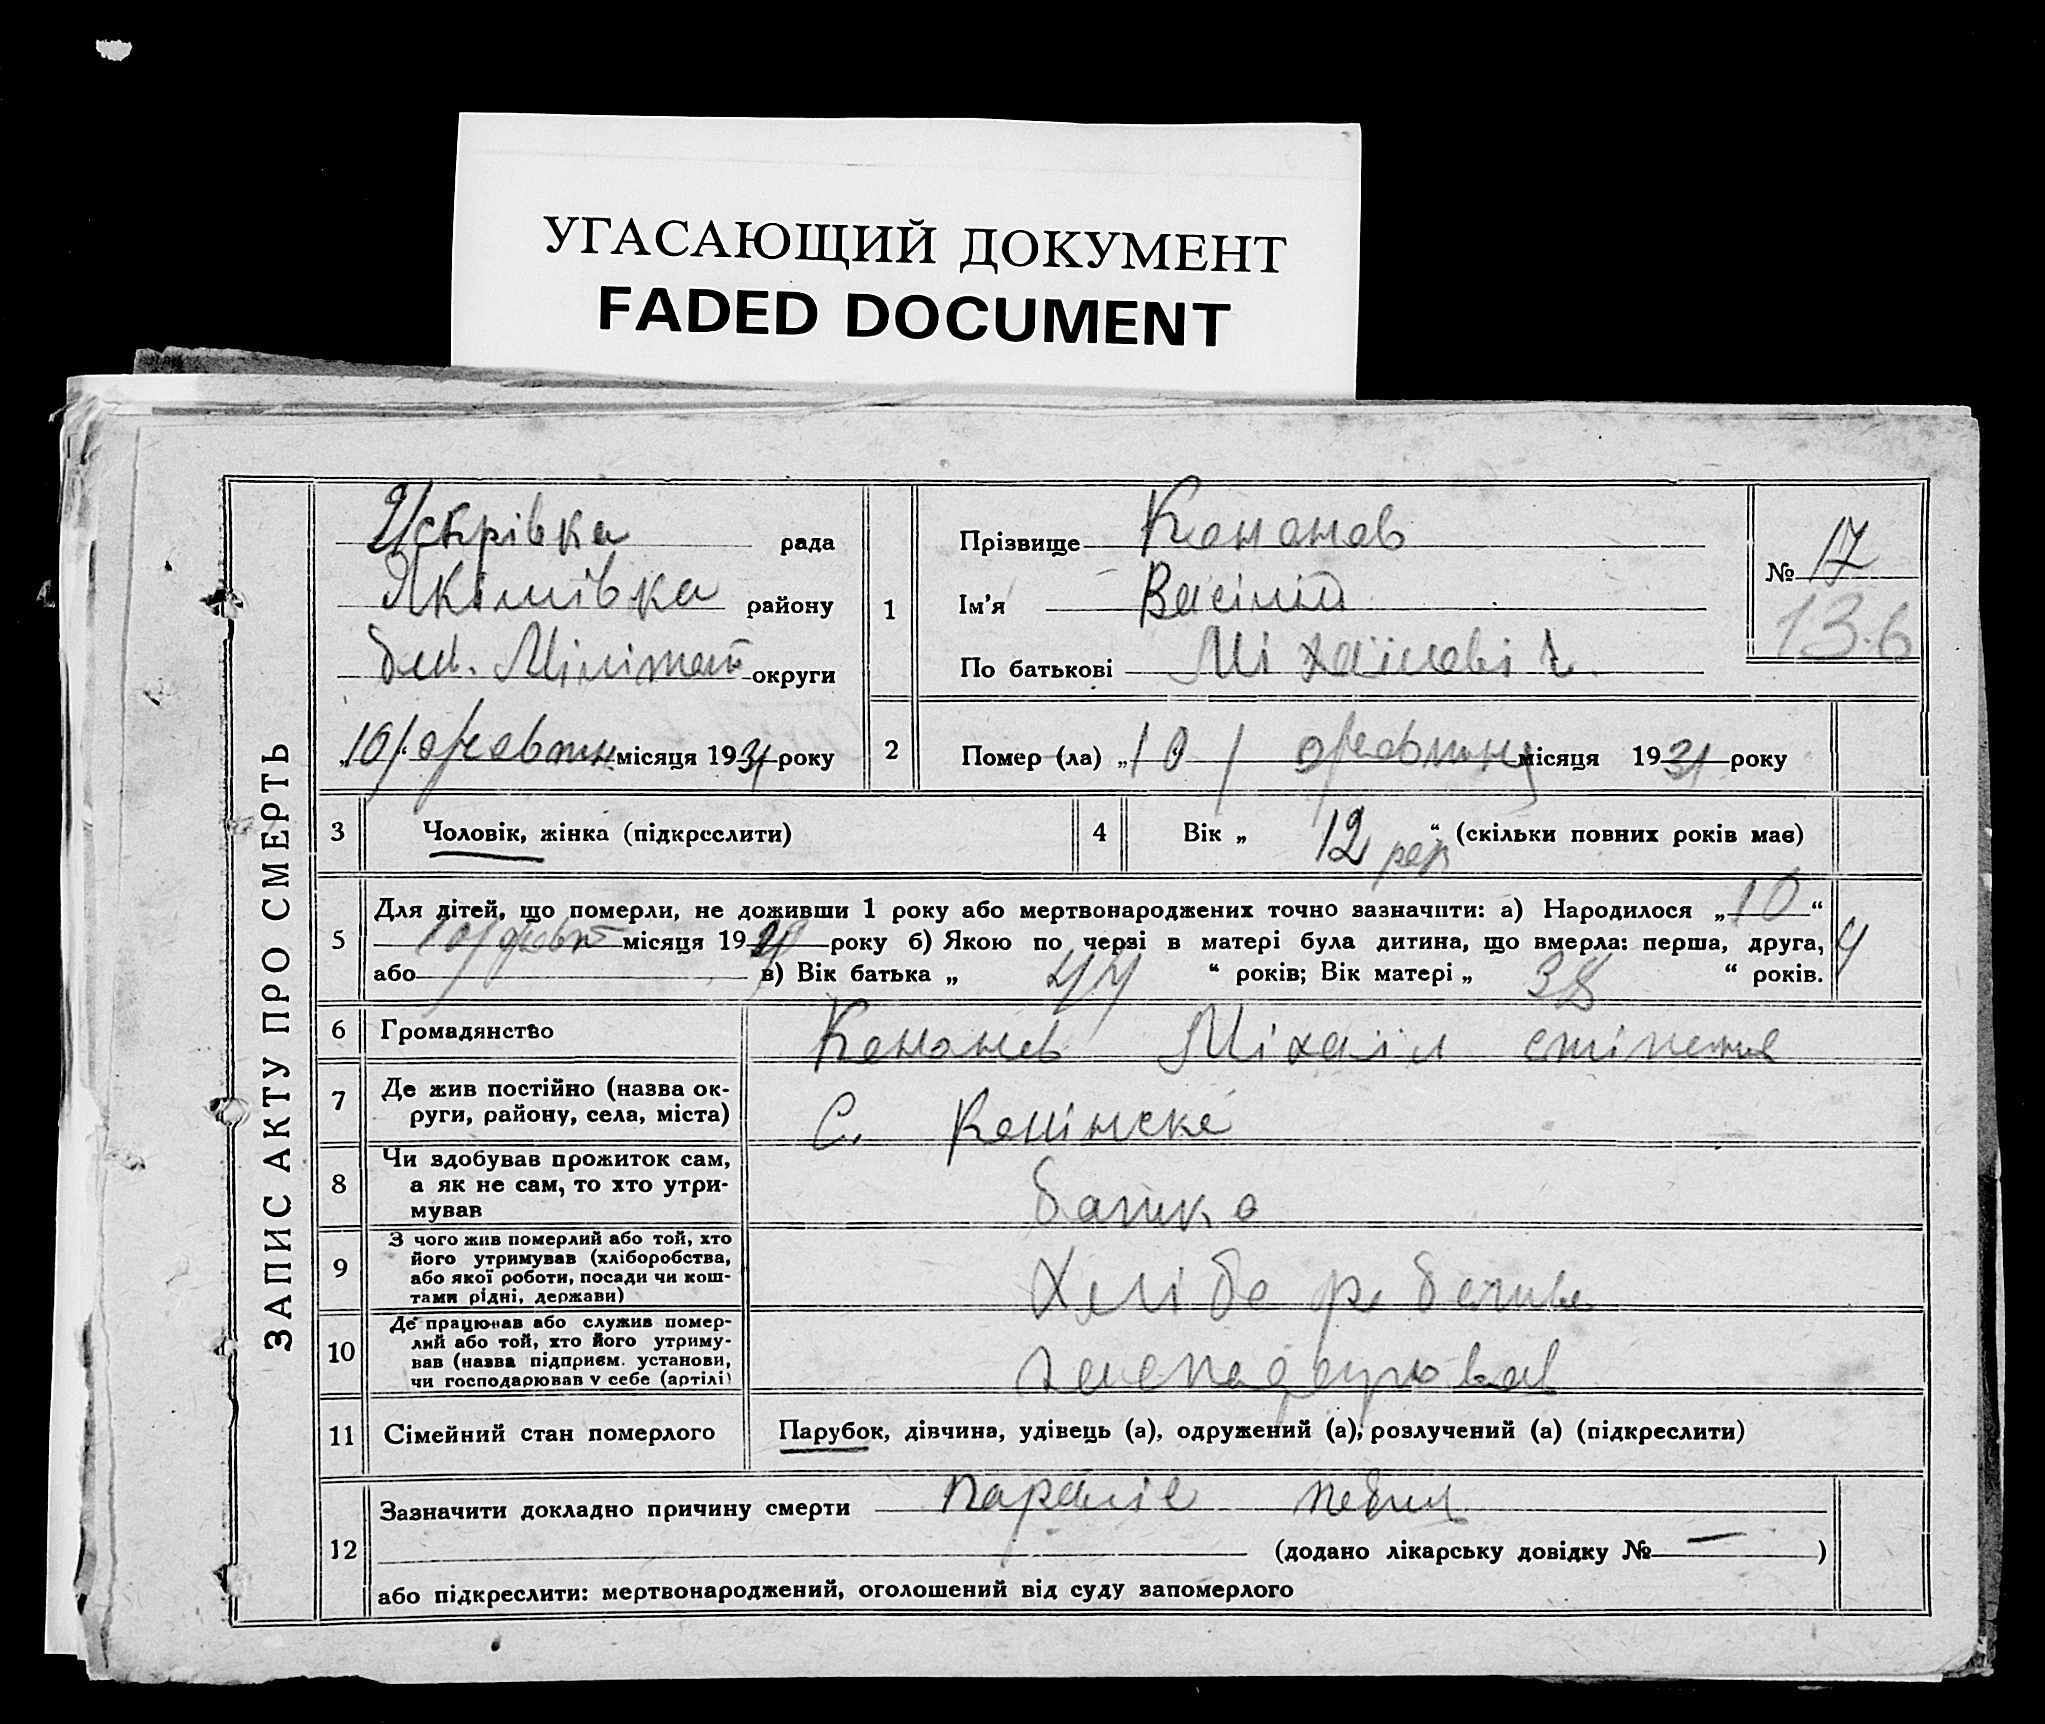 УГАСАЮЩИЙ ДОКУМЕНТ
FADED DOCUMENT
ЗАПИС АКТУ ПРО СМЕРТЬ
Искрівка рада
Якімівка району
Мілітоп округи
„10/ жовтня місяця 1931 року
1
Прізвище Кононов
Ім'я Васілій
По батькові Міхайловіч
№ 17
136
2
Помер (ла) „10 / жовтня місяця 1931 року
3 Чоловік, жінка (підкреслити)
4 Вік „ 12 рок “ (скільки повних років має)
5 Для дітей, що померли, не доживши 1 року або мертвонароджених точно зазначити: а) Народилося „10“
10/ жовт місяця 19 року б) Якою по черзі в матері була дитина, що вмерла: перша, друга, 4
або в) Вік батька „ 44 “ років; Вік матері „ 38 “ років.
6 Громадянство Кононов Міхаіл
7 Де жив постійно (назва округи, району, села, міста) С.
8 Чи здобував прожиток сам, а як не сам, то хто утримував батько
9 З чого жив померлий або той, хто його утримував (хліборобства, або якої роботи, посади чи коштами рідні, держави)
10 Де працював або служив померлий або той, хто його утримував (назва підприєм. установи, чи господарював у себе (артілі)
11 Сімейний стан померлого Парубок, дівчина, удівець (а), одружений (а), розлучений (а) (підкреслити)
12 Зазначити докладно причину смерти параліс
(додано лікарську довідку № — )
або підкреслити: мертвонароджений, оголошений від суду запомерлого